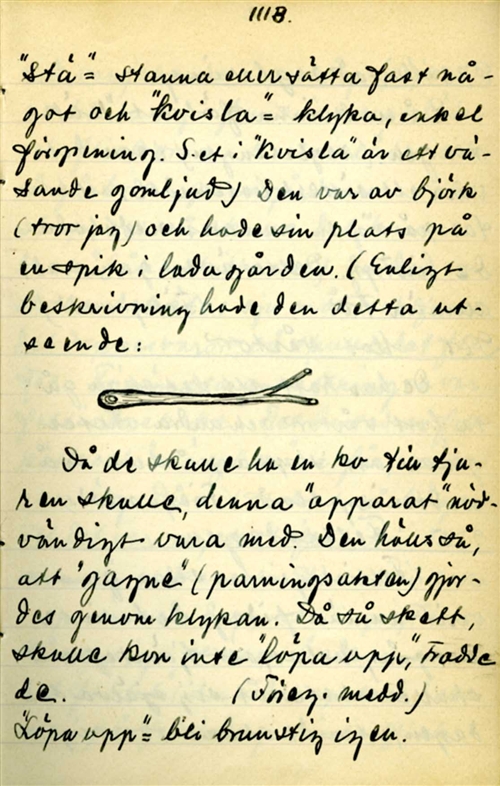 1118.
"Stå" = stanna eller sätta fast nå-
got och "kvisla" = klyka, enkel
förgrening. S-et i "kvisla" är ett vä-
sande gomljud) Den var av björk
(tror jag) och hade sin plats på
en spik i ladugården. (Enligt
beskrivning hade den detta ut-
seende:
Då de skulle ha en ko till tju-
ren skulle, denna "apparat" nöd-
vändigt vara med. Den hölls så,
att "gagne" (parningsakten) gjor-
des genom klykan. Då så skett,
skulle kon inte "löpa upp", trodde
de. medd.)
"Löpa upp" = bli brunstig igen.